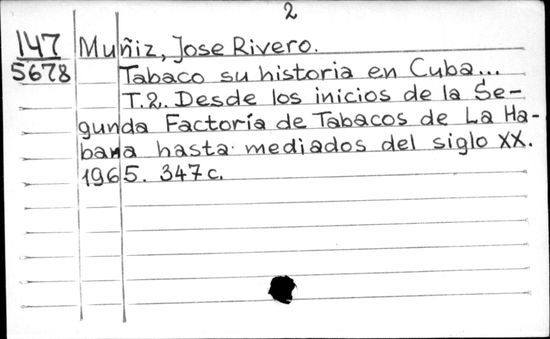 2
147 Muñiz, Jose Rivero.
5678 Tabaco su historia en Cuba...
T.2. Desde los inicios de la Se-
gunda Factoría de Tabacos de La Ha-
bana hasta mediados del siglo XX.
1965. 347c.